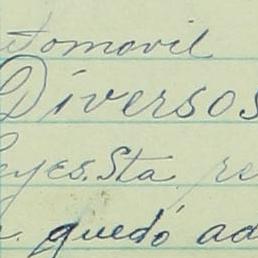 utomovil
Diversos
eyes. Sta. re
quedó ad